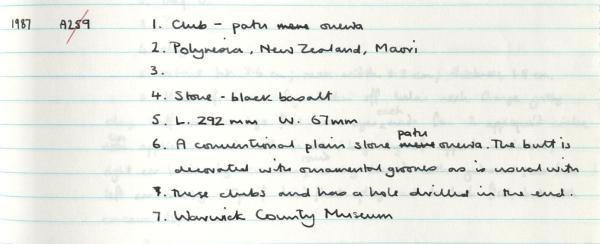 1987 A259 1. Club - patu mere onewa
2. Polynesia, New Zealand, Maori
3.
4. Stone - black basalt
5. L. 292 mm W. 67mm
patu
6. A conventional plain stone mere onewa. The butt is
decorated with ornamental grooves as is usual with
7. these clubs and has a hole drilled in the end.
7. Warwick County Museum